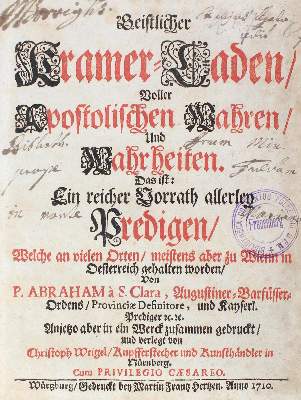 Geistlicher
Kramer-Laden/
Voller
Apostolischen Wahren/
Und
Wahrheiten.
Das ist:
Ein reicher Vorrath allerley
Predigen/
Welche an vielen Orten/ meistens aber zu Wienn in
Oesterreich gehalten worden/
Von
P. ABRAHAM à S. Clara, Augustiner-Barfüsser-
Ordens/ Provinciæ Definitore, und Kayserl.
Prediger ꝛc. ꝛc.
Anjetzo aber in ein Werck zusammen gedruckt/
und verlegt von
Christoph Weigel/ Kupfferstecher und Kunsthändler in
Nürnberg.
Cum PRIVILEGIO CÆSAREO.
Würtzburg/ Gedruckt bey Martin Frantz Hertzen. Anno 1710.